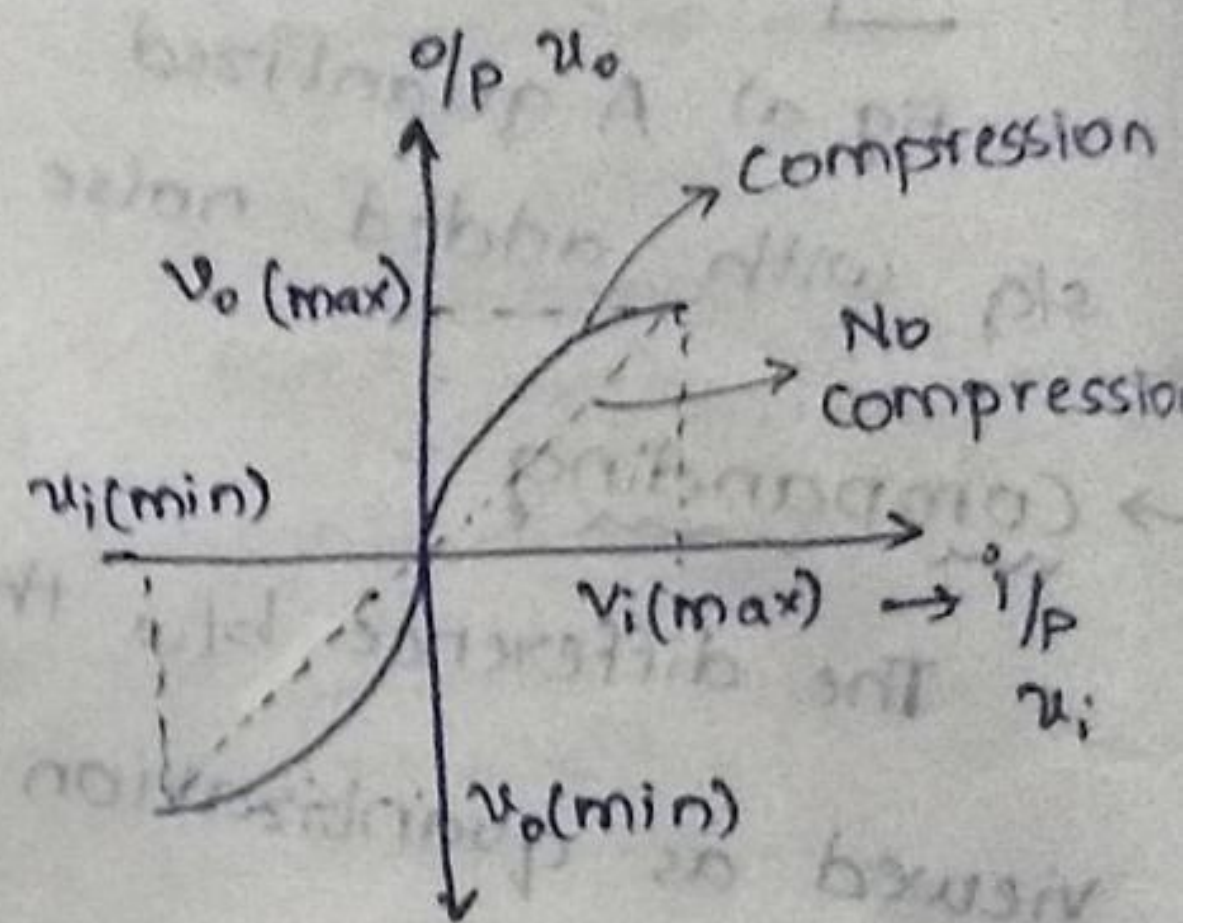 o/p v₀
compression
v₀ (max)
No
compressio
vᵢ(min)
vᵢ(max) → i/p
vᵢ
v₀(min)